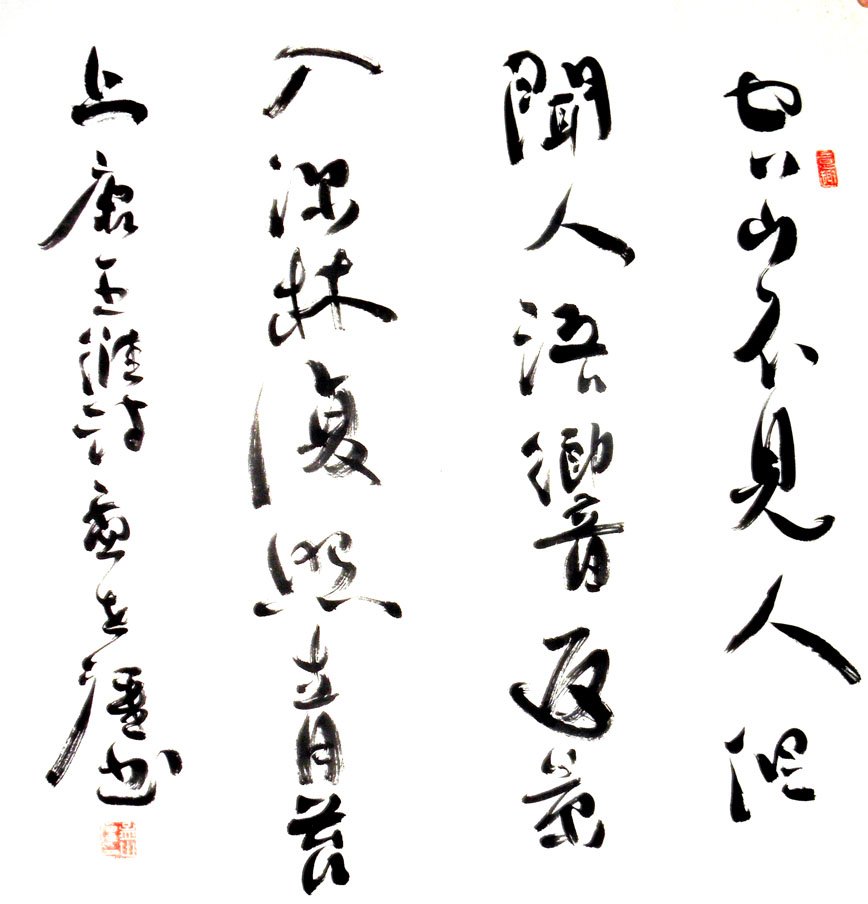 空山不見人但
聞人語響返景
入深林復照青苔
上唐王維詩書